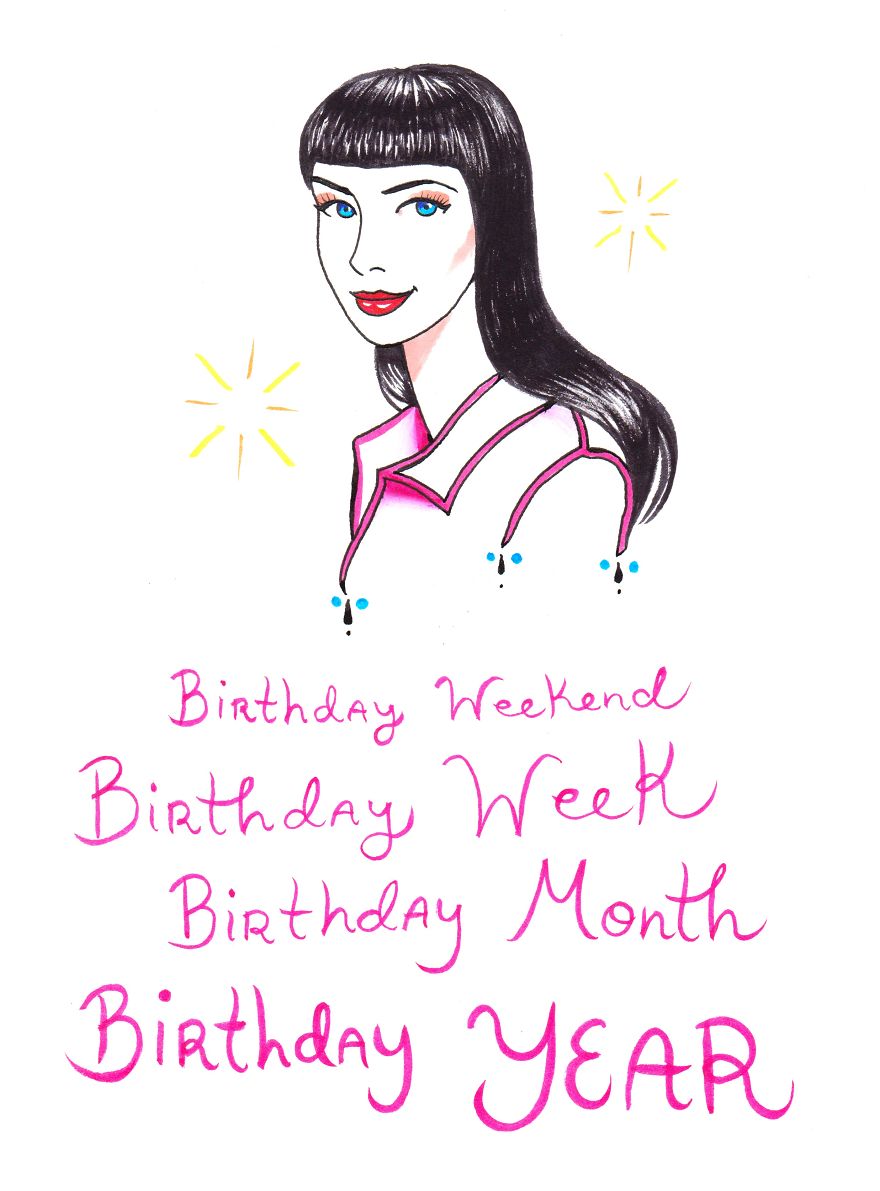 Birthday Weekend
Birthday Week
Birthday Month
Birthday YEAR